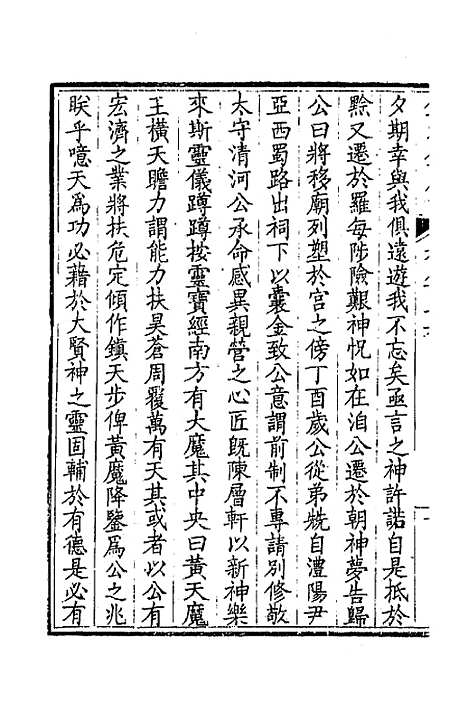 夕期幸與我俱遠遊我不忘矣亟言之神許諾自是抵於
黔又遷於羅每陟險艱神怳如在洎公遷於朝神夢告歸
公曰將移廟列塑於宫之傍丁酉歲公從弟兟自澧陽尹
亞西蜀路出祠下以囊金致公意謂前制不專請别修敬
太守清河公承命感異親營之心匠旣陳層軒以新神樂
來斯靈儀蹲蹲按靈寶經南方有大魔其中央曰黃天魔
王橫天贍力謂能力扶昊蒼周覆萬有天其或者以公有
宏濟之業將扶危定傾作鎭天步俾黃魔降鑒爲公之兆
朕乎噫天爲功必藉於大賢神之靈固輔於有德是必有